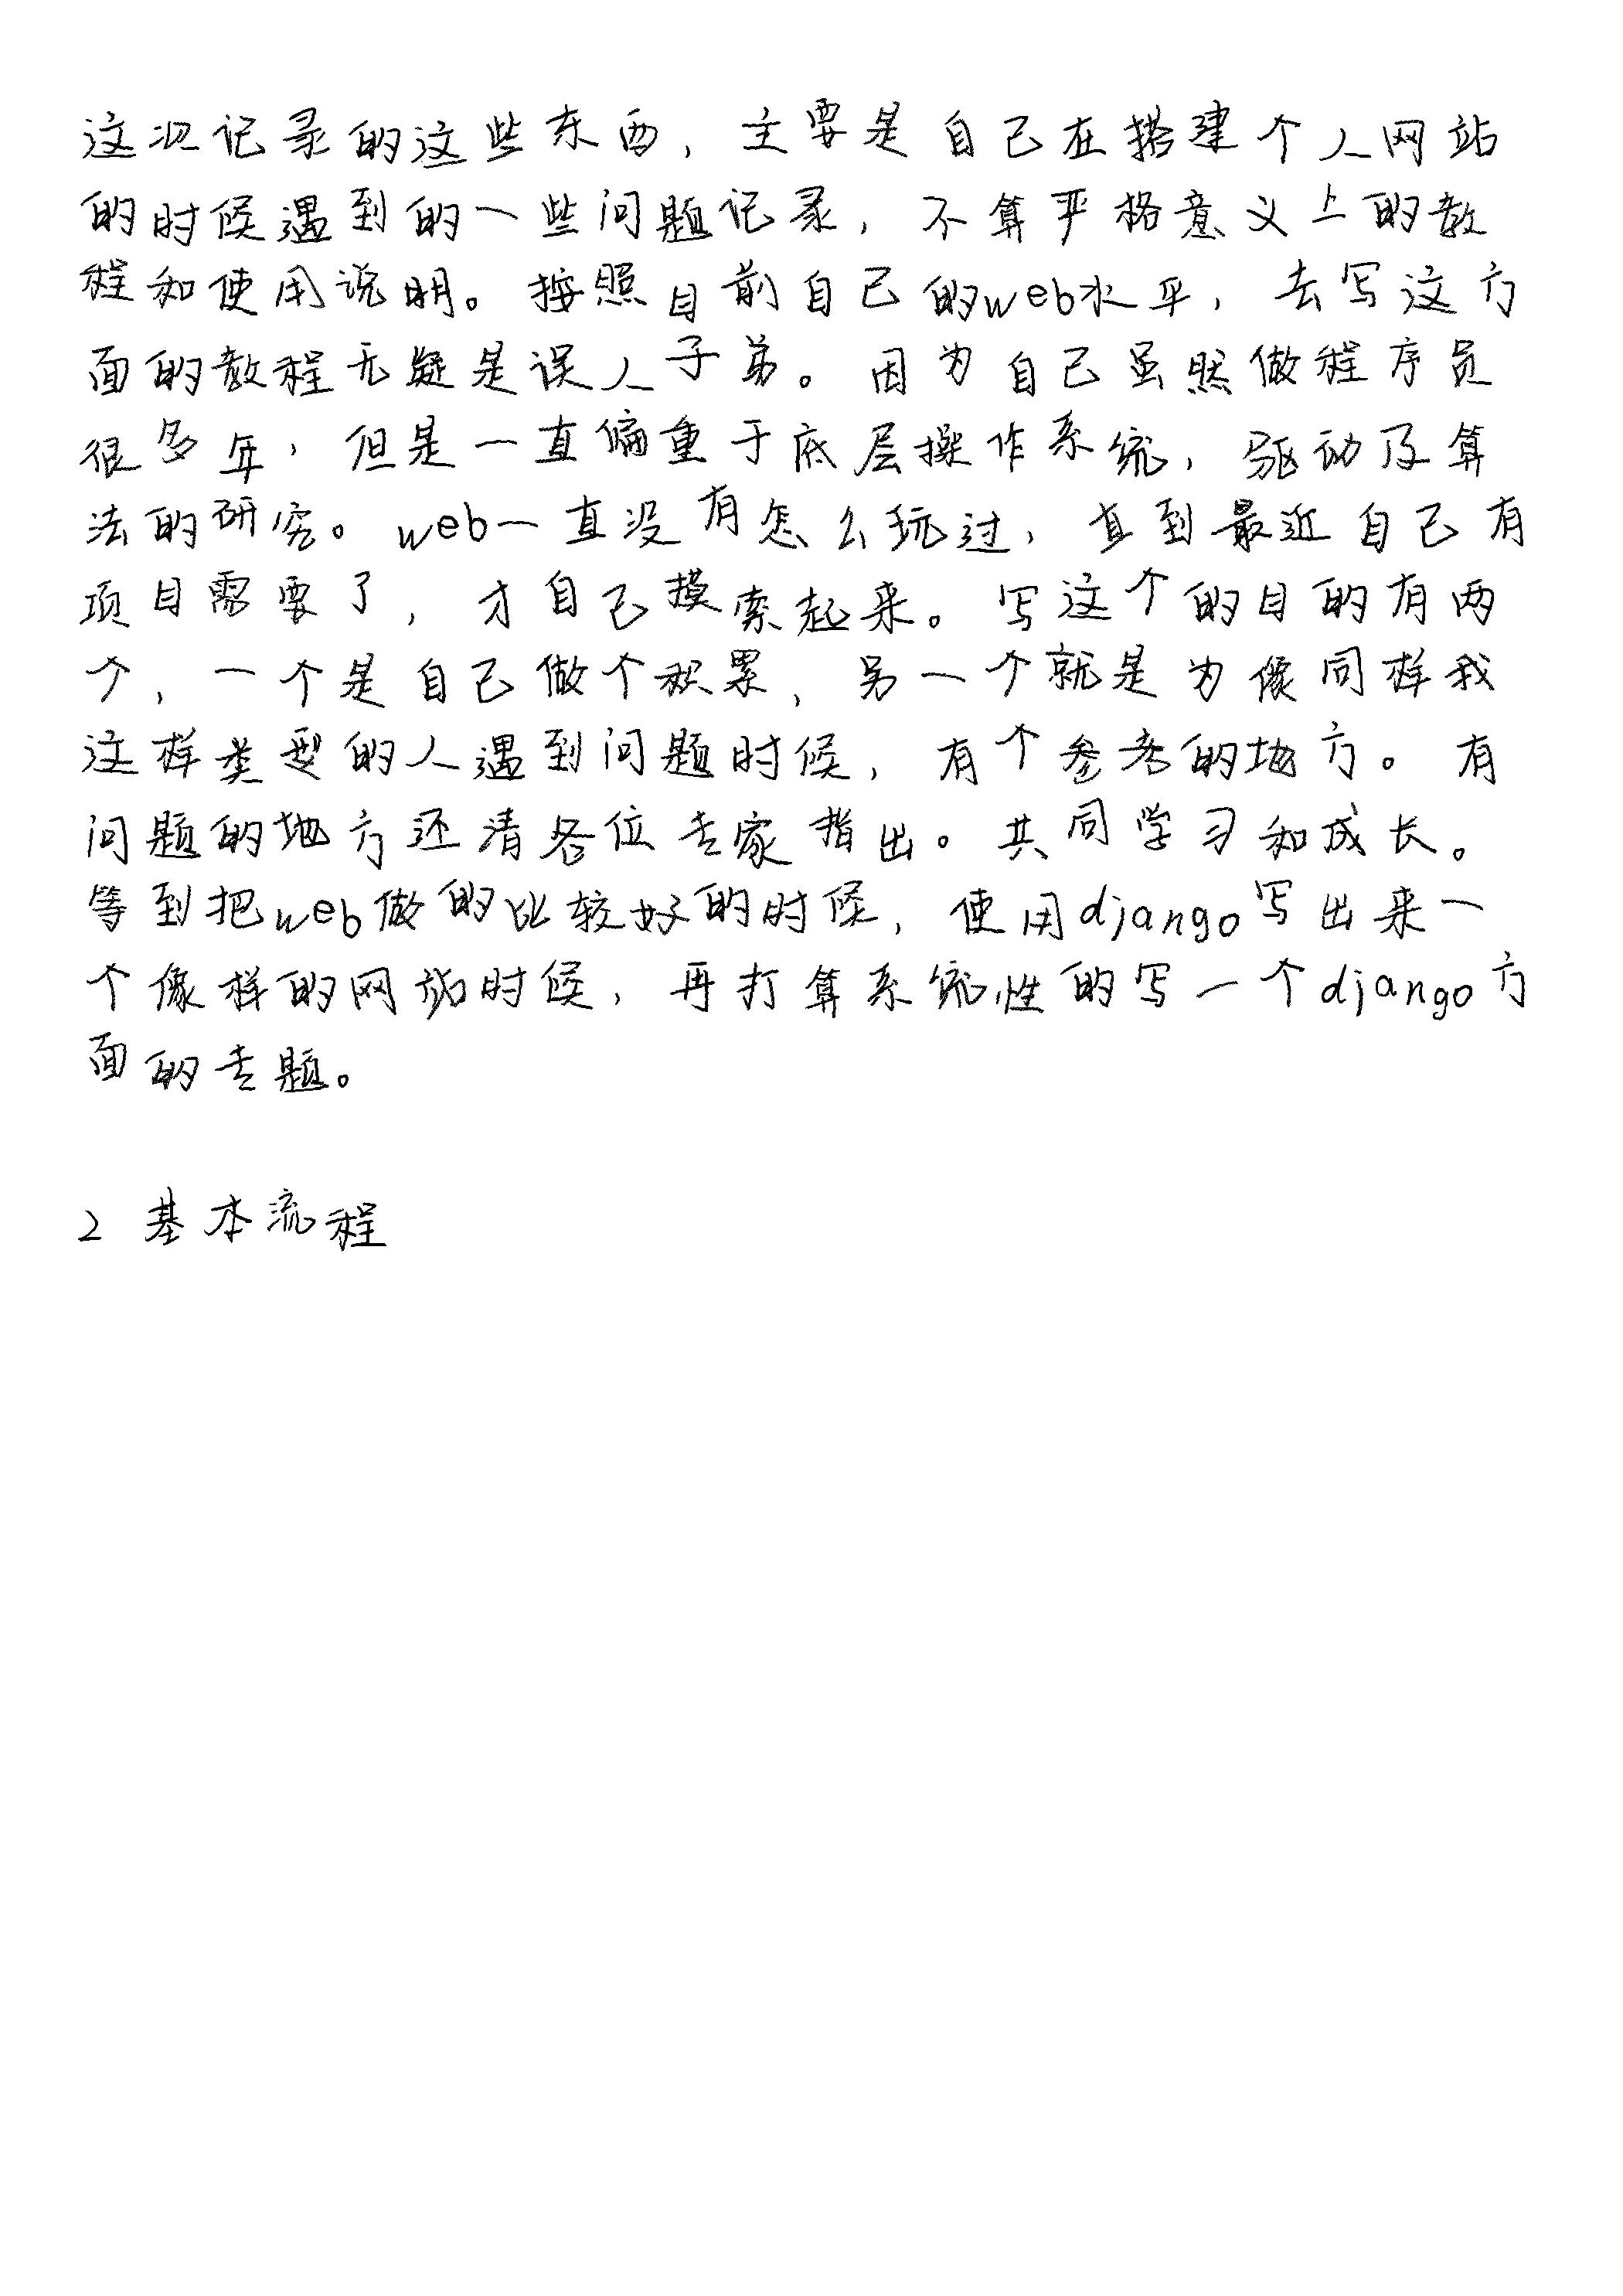 这次记录的这些东西，主要是自己在搭建个人网站
的时候遇到的一些问题记录，不算严格意义上的教
程和使用说明。按照目前自己的web水平，去写这方
面的教程无疑是误人子弟。因为自己虽然做程序员
很多年，但是一直偏重于底层操作系统，驱动及算
法的研究。web一直没有怎么玩过，直到最近自己有
项目需要了，才自己摸索起来。写这个的目的有两
个，一个是自己做个积累，另一个就是为像同样我
这样类型的人遇到问题时候，有个参考的地方。有
问题的地方还清各位专家指出。共同学习和成长。
等到把web做的比较好的时候，使用django写出来一
个像样的网站时候，再打算系统性的写一个django方
面的专题。
2 基本流程